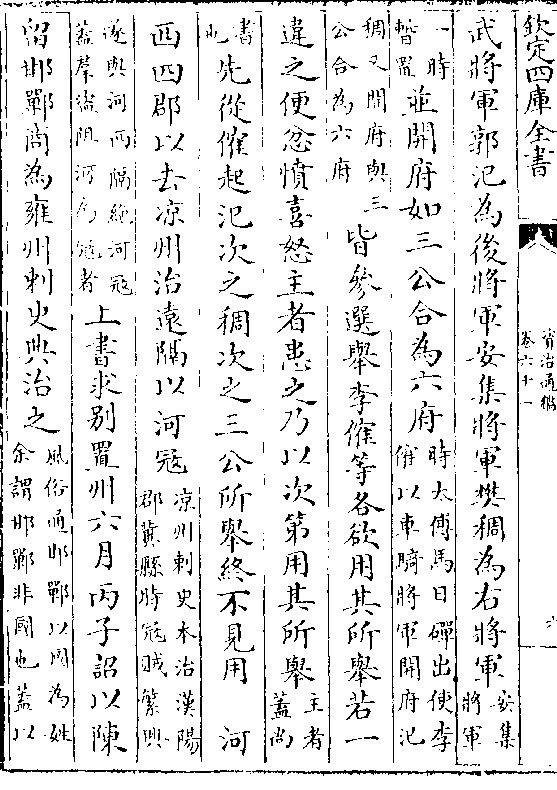 欽定四庫全書
資治通鑑
卷六十一
六
武將軍郭汜為後將軍安集將軍樊稠為右將軍安集將軍
一時暫置並開府如三公合為六府時太傅馬日磾出使李傕以車騎將軍開府汜
稠又開府與三公合為六府皆參選舉李傕等各欲用其所舉若一
違之便忿憤喜怒主者患之乃以次第用其所舉主者蓋尚
書也先從傕起汜次之稠次之三公所舉終不見用　河
西四郡以去涼州治遠隔以河寇涼州刺史本治漢陽郡冀縣時寇賊繁興
遂與河西隔絶河寇蓋羣盜阻河為寇者上書求别置州六月丙子詔以陳
留邯鄲商為雍州刺史典治之風俗通邯鄲以國為姓余謂邯鄲非國也蓋以